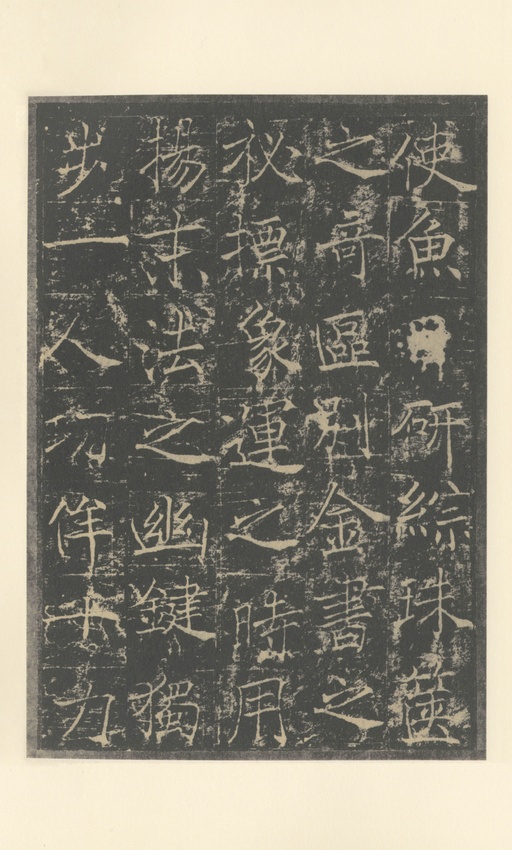 使魚□研綜珠篋
之奇區別金書之
祕摽象運之時用
揚末法之幽鍵獨
步一人六伴十力